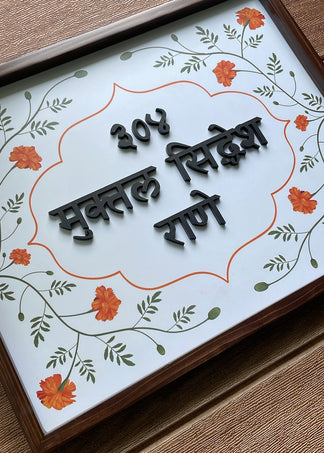 ३०४
मुक्तल सिद्धेश
राणे